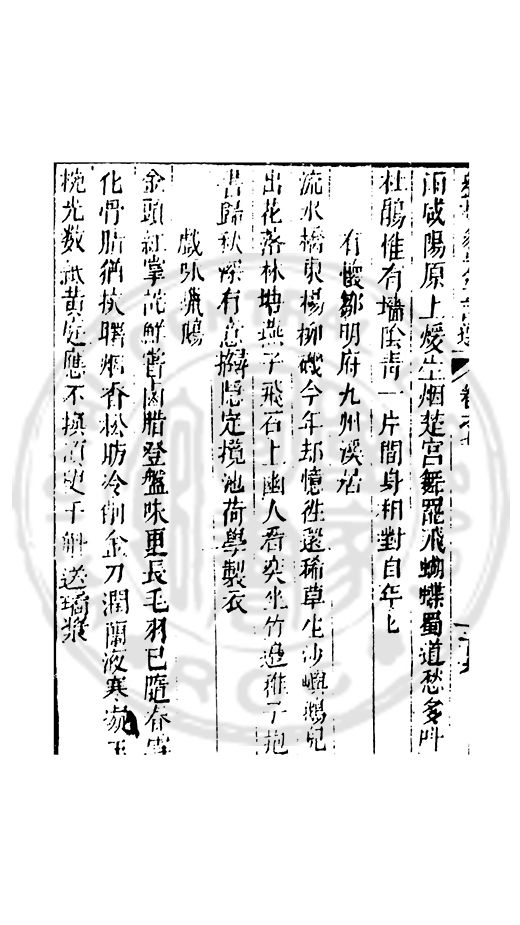 雨咸陽原上煖生烟楚宮舞罷飛蝴蝶蜀道愁多叫
杜鵑惟有墻陰青一片閒身相對自年七
有懷鄒明府九州溪居
流水橋東楊柳磯今年却憶往還稀草生沙嶼鵝兒
出花落林塘燕子飛石上幽人看奕坐竹邊稚子抱
書歸秋深有意擬隱定攬池荷學製衣
戲咏臘鵝
金頭紅掌 鮮嘗 腊登盤味更長毛羽已隨春雪
化骨脂猶 烟香松肪冷削金刀潤蘭液寒凝玉
椀光數 黃庭應不換 更千 送瓊漿